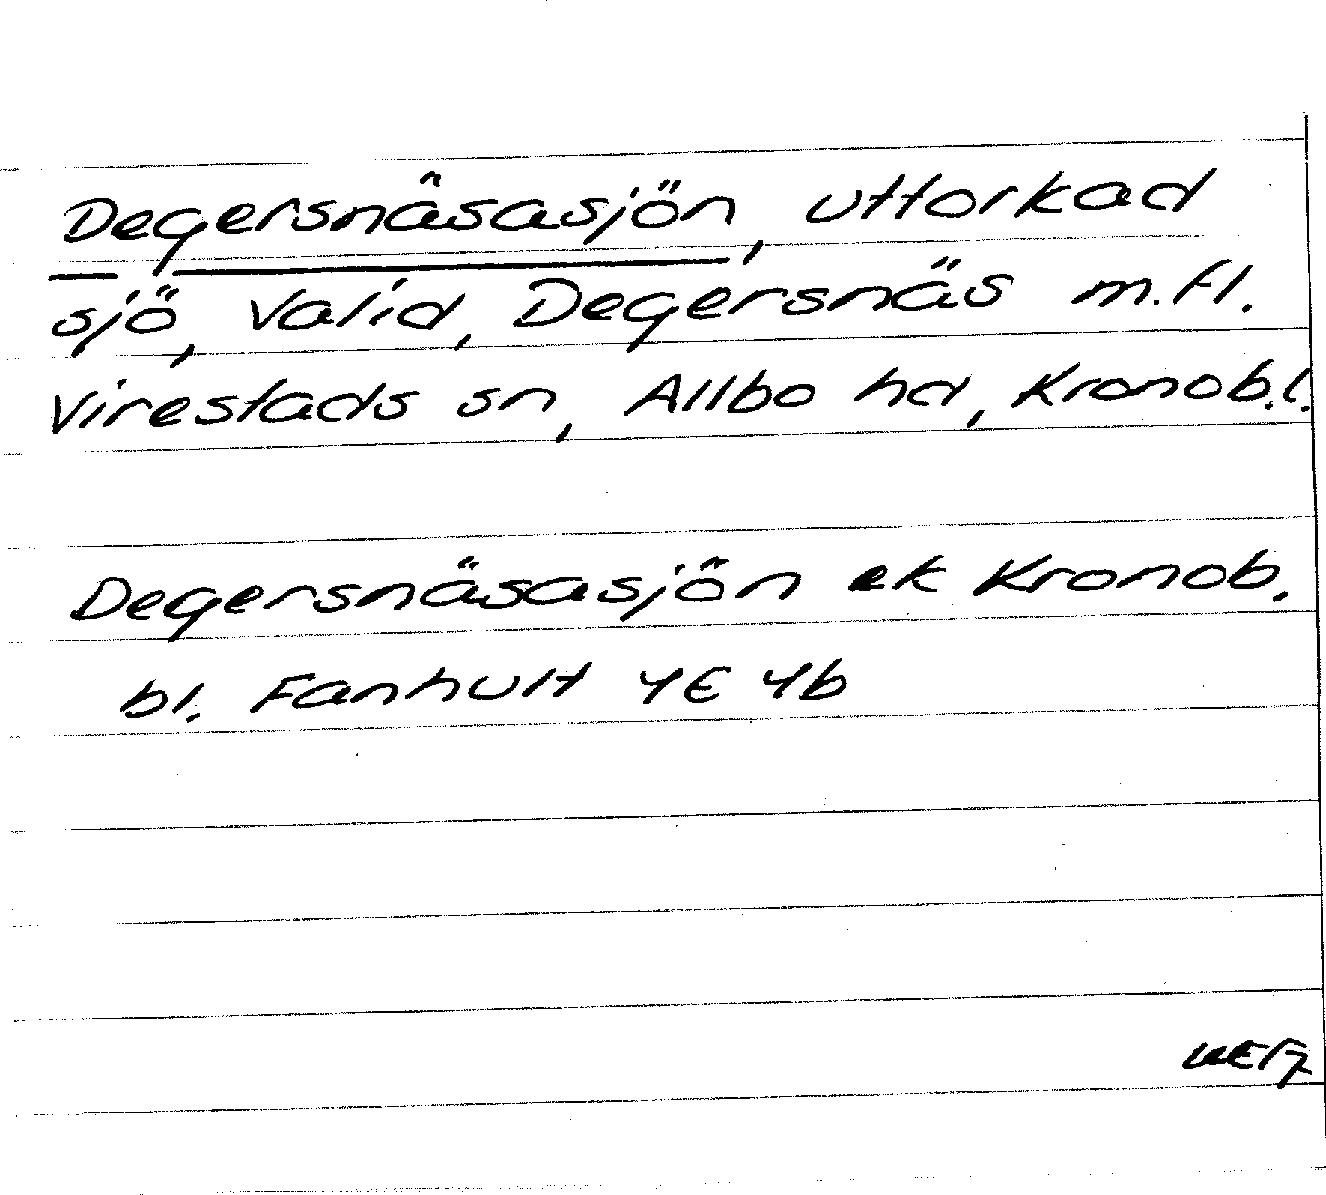 Degersnäsasjön, uttorkad
sjö, Valid, Degersnäs m.fl.
Virestads sn, Allbo hd, Kronob.l.
Degersnäsasjön ek Kronob.
bl. Fanhult 4E 4b